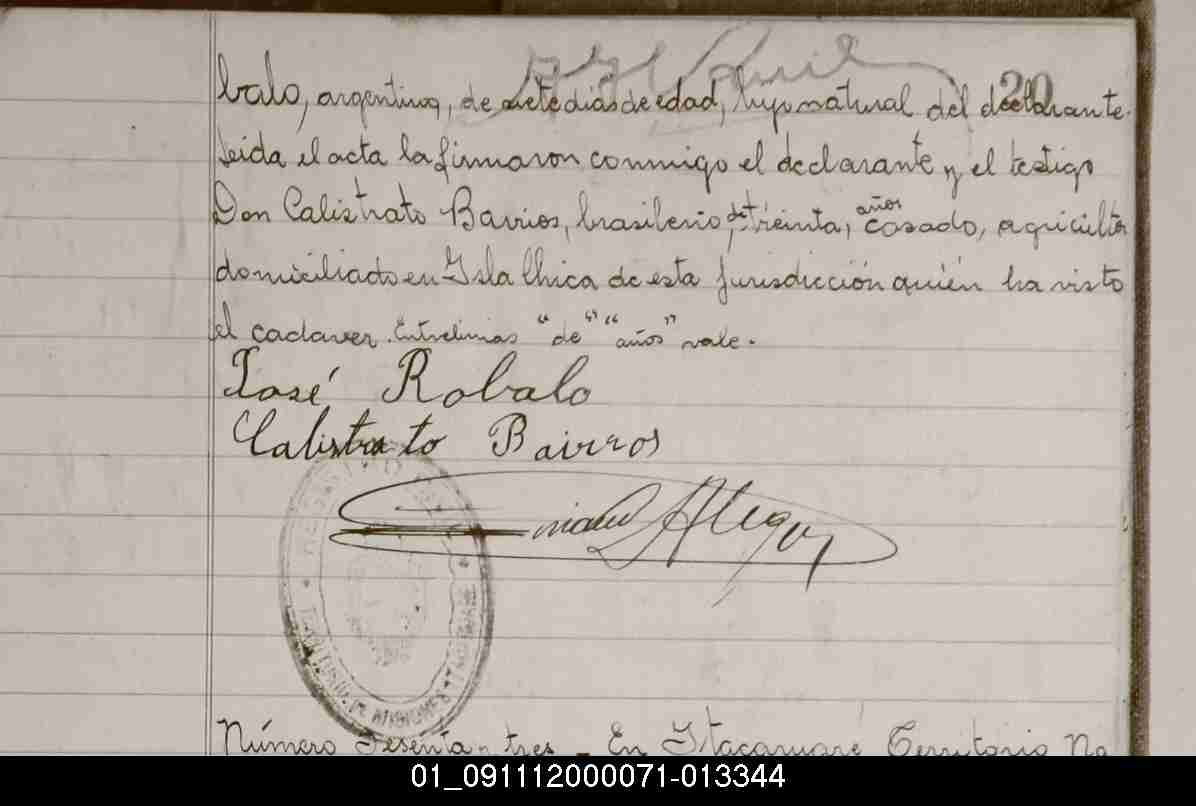 20
balo, argentino, de siete dias de edad, hijo natural del declarante.
Leida el acta la firmaron conmigo el declarante y el testigo
Don Calistrato Barrios, brasilerio, de treinta, años casado, agricultor
domiciliado en Isla Chica de esta jurisdicción quién ha visto
el cadaver. Entrelinias "de" "años" vale.
José Robalo
Calistrato Bairros
Alegre
REGISTRO
TERRITORIO DE MISIONES
Número Sesenta y tres _ En Itacaruaré Territorio Na
01_091112000071-013344